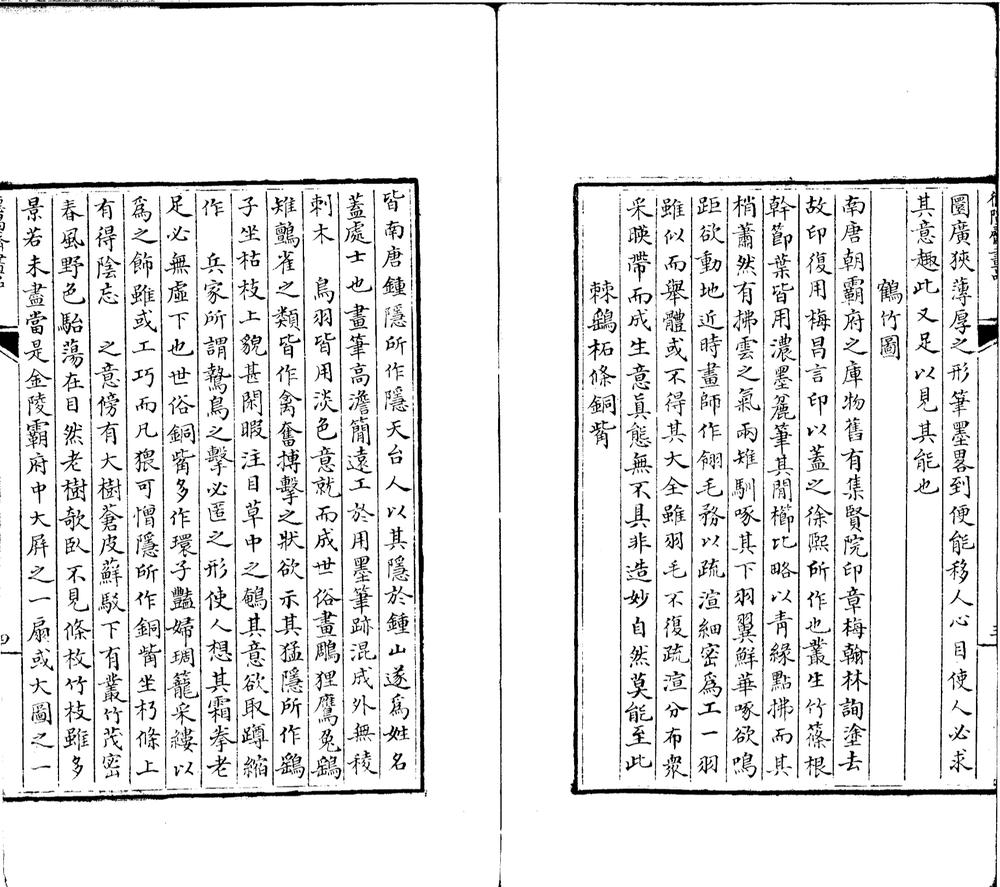 圜廣狹薄厚之形筆墨畧到便能移人心目使人必求
其意趣此又足以見其能也
鶴竹圖
南唐朝霸府之庫物舊有集賢院印章梅翰林詢塗去
故印復用梅昌言印以蓋之徐熙所作也叢生竹篠根
幹節葉皆用濃墨麄筆其閒櫛比略以青綠點拂而其
梢蕭然有拂雲之氣兩雉馴啄其下羽翼鮮華啄欲鳴
距欲動地近時畫師作翎毛務以疏渲細密爲工一羽
雖似而舉體或不得其大全雖羽毛不復疏渲分布衆
采映帶而成生意眞態無不具非造妙自然莫能至此
棘鷂柘條銅觜
皆南唐鍾隱所作隱天台人以其隱於鍾山遂爲姓名
蓋處士也畫筆高澹簡遠工於用墨筆跡混成外無稜
刺木 鳥羽皆用淡色意就而成世俗畫鵰狸鷹兔鷂
雉鸇雀之類皆作禽奮搏擊之狀欲示其猛隱所作鷂
子坐枯枝上貌甚閑暇注目草中之鵪其意欲取蹲縮
作 兵家所謂鷙鳥之擊必匿之形使人想其霜拳老
足必無虛下也世俗銅觜多作環子豔婦琱籠采縷以
爲之飾雖或工巧而凡猥可憎隱所作銅觜坐朽條上
有得陰忘 之意傍有大樹蒼皮蘚駁下有叢竹茂密
春風野色駘蕩在目然老樹欹臥不見條枚竹枝雖多
景若未盡當是金陵霸府中大屏之一扇或大圖之一